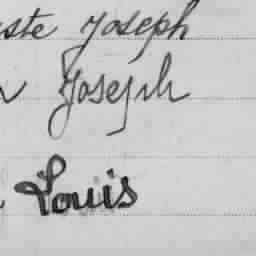 Joseph
Joseph
Louis